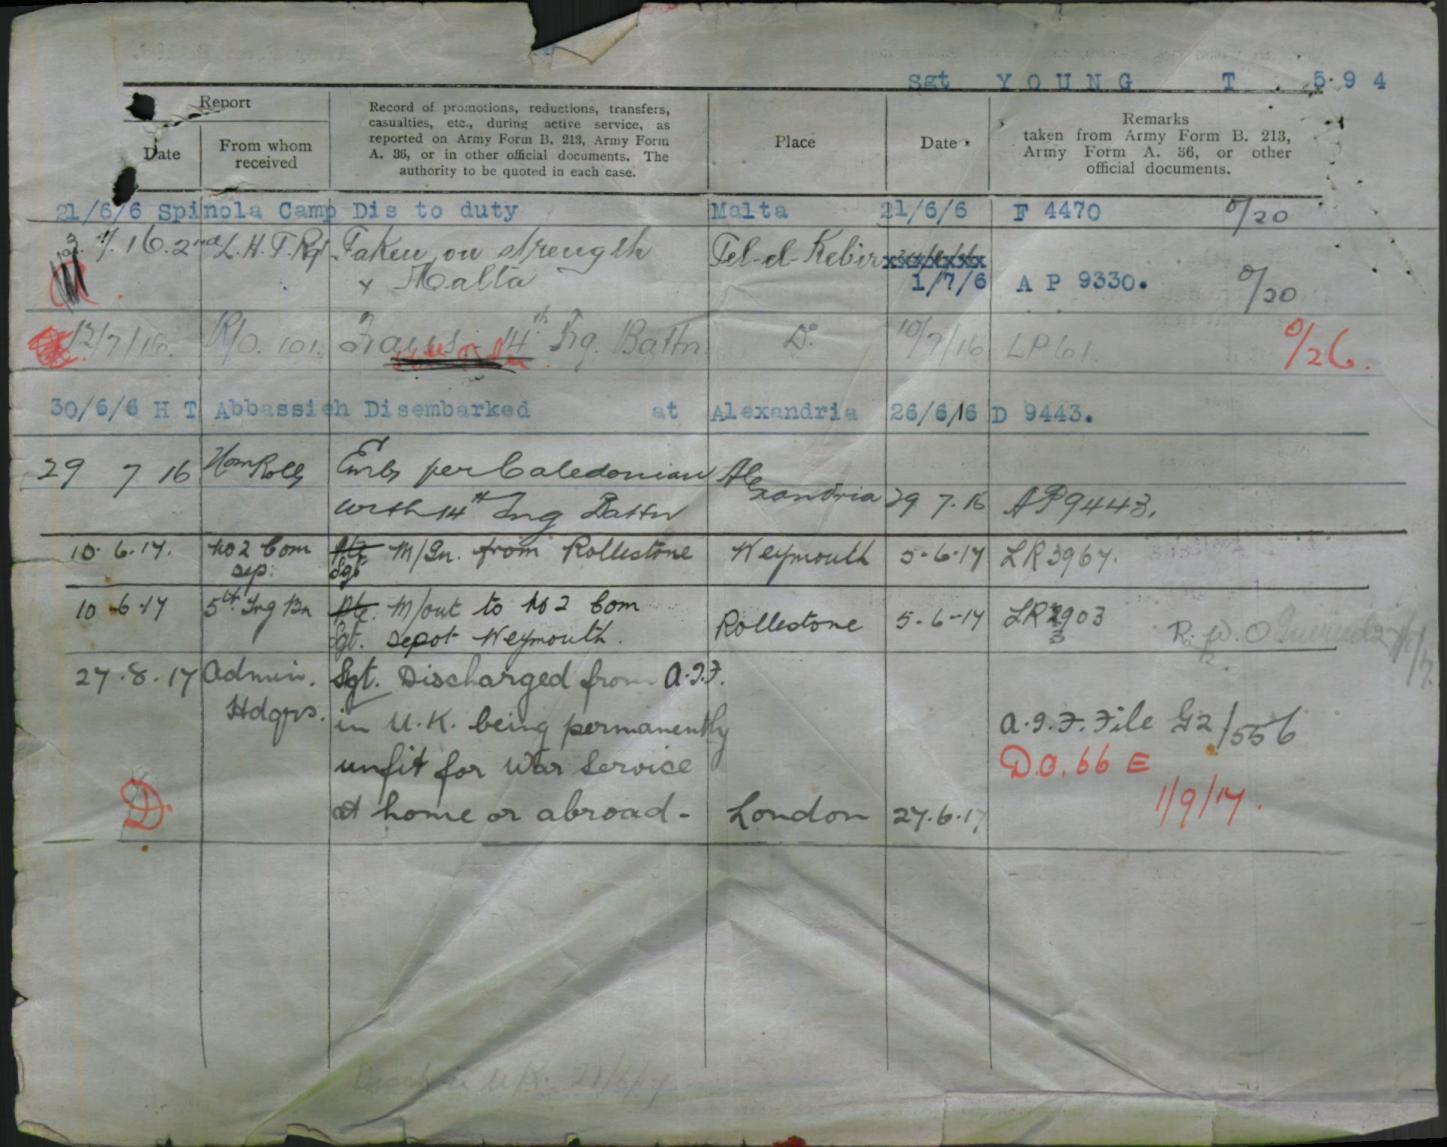 Sgt YOUNG T. 594
Report
Date
From whom received
Record of promotions, reductions, transfers,
casualties, etc., during active service, as
reported on Army Form B. 213, Army Form
A. 36, or in other official documents. The
authority to be quoted in each case.
Place
Date
Remarks
taken from Army Form B. 213,
Army Form A. 36, or other
official documents.
21/6/6 Spinola Camp Dis to duty Malta 21/6/6 F 4470 O/20
16. 2nd L.H.T.Rgt Taken on strength Tel-el-Kebir xxxxxxx
x Malta 1/7/6 A P 9330. O/20
12/7/16. R/O. 101. Trans. 14th Trg. Battn. Do. 10/7/16 LP61. O/26.
30/6/6 H T Abbassieh Disembarked at Alexandria 26/6/16 D 9443.
29 7 16 Nom Rolls Emb per Caledonian Alexandria
with 14th Trng Battn 29 7.16 AP9443.
10.6.17. No 2 Com Dep. Sgt M/In. from Rollestone Weymouth 5-6-17 LR3967.
10-6-17 5th Trg Bn M/out to No 2 Com Rollestone 5.6-17
Sgt. Depot Weymouth.
27.8.17 Admin. Sgt. Discharged from A.I.F.
Hdqrs. in U.K. being permanently A.I.F. File G2/556
unfit for War Service D.O. 66 E
at home or abroad - London 27.6.17 1/9/17.
D